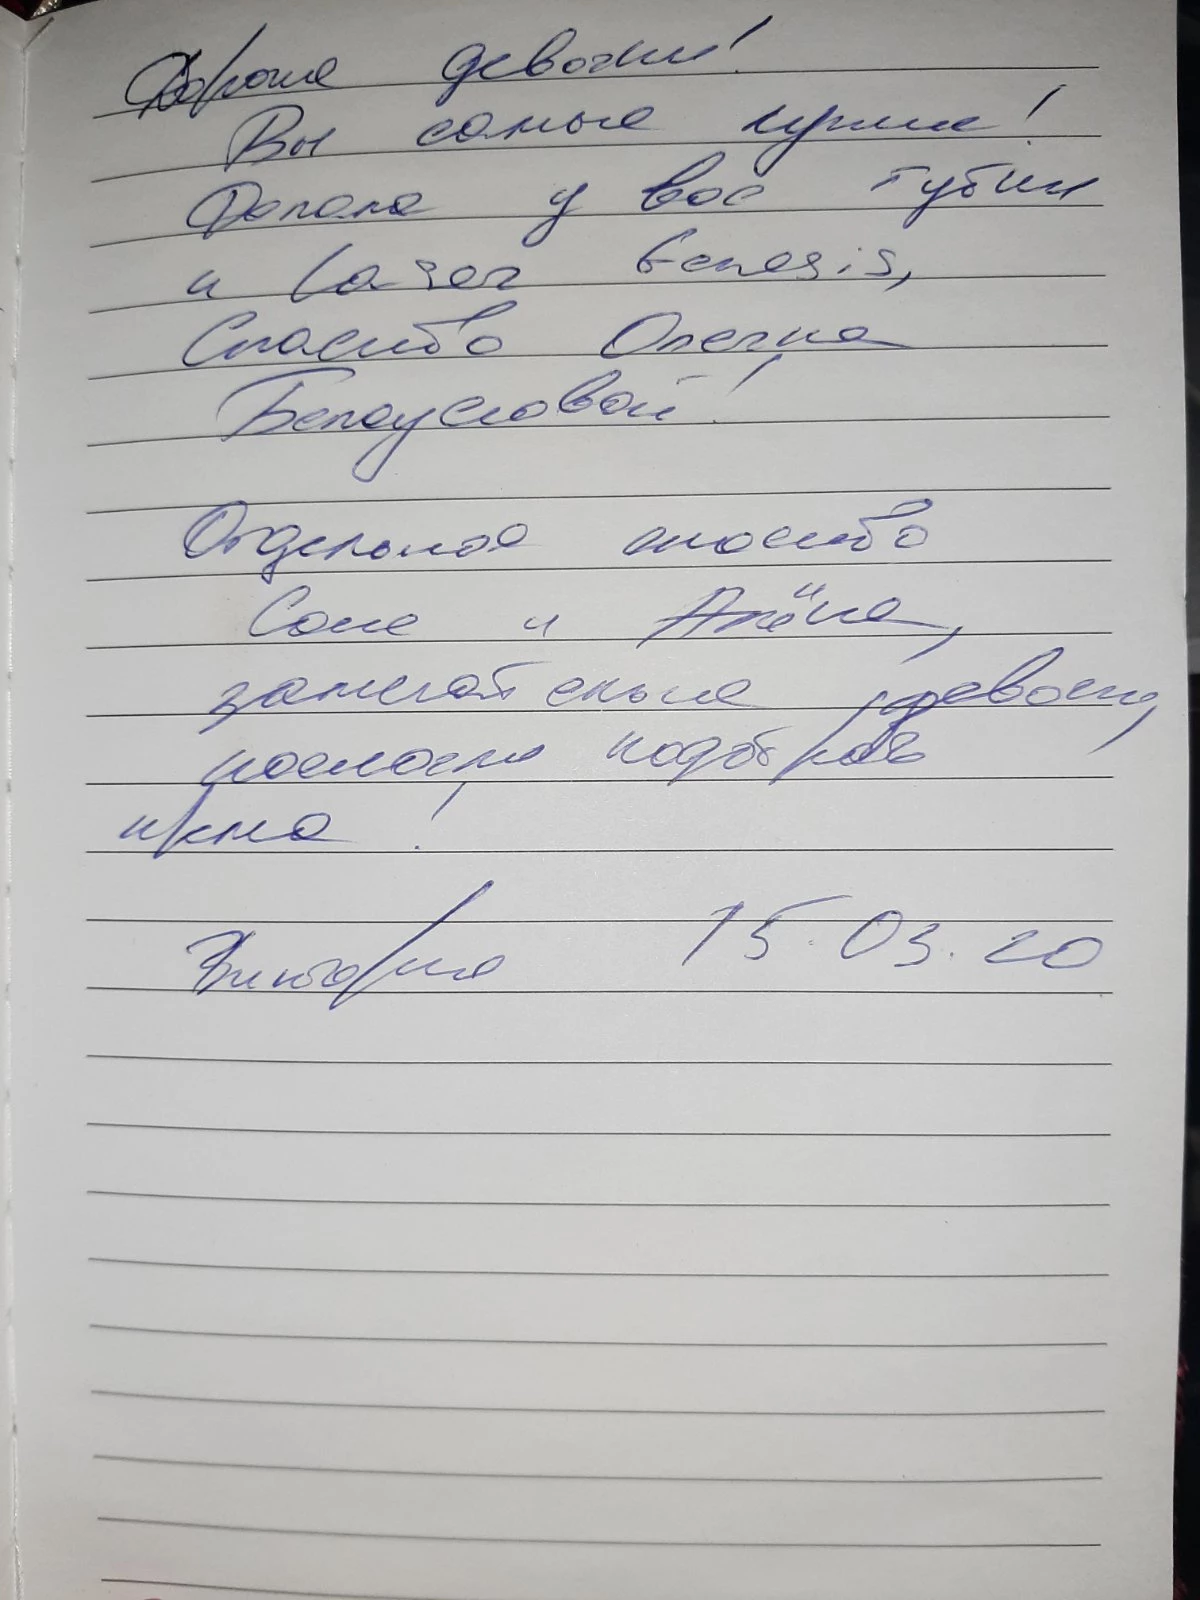 Дорогие девочки!
Вы самые лучшие!
Делала у вас губки
и Laser Genesis,
Спасибо Олечке
Белоусовой!
Отдельное спасибо
Соне и Алёне,
замечательные девочки,
помогли подобрать
крема!
Виктория 15.03.20